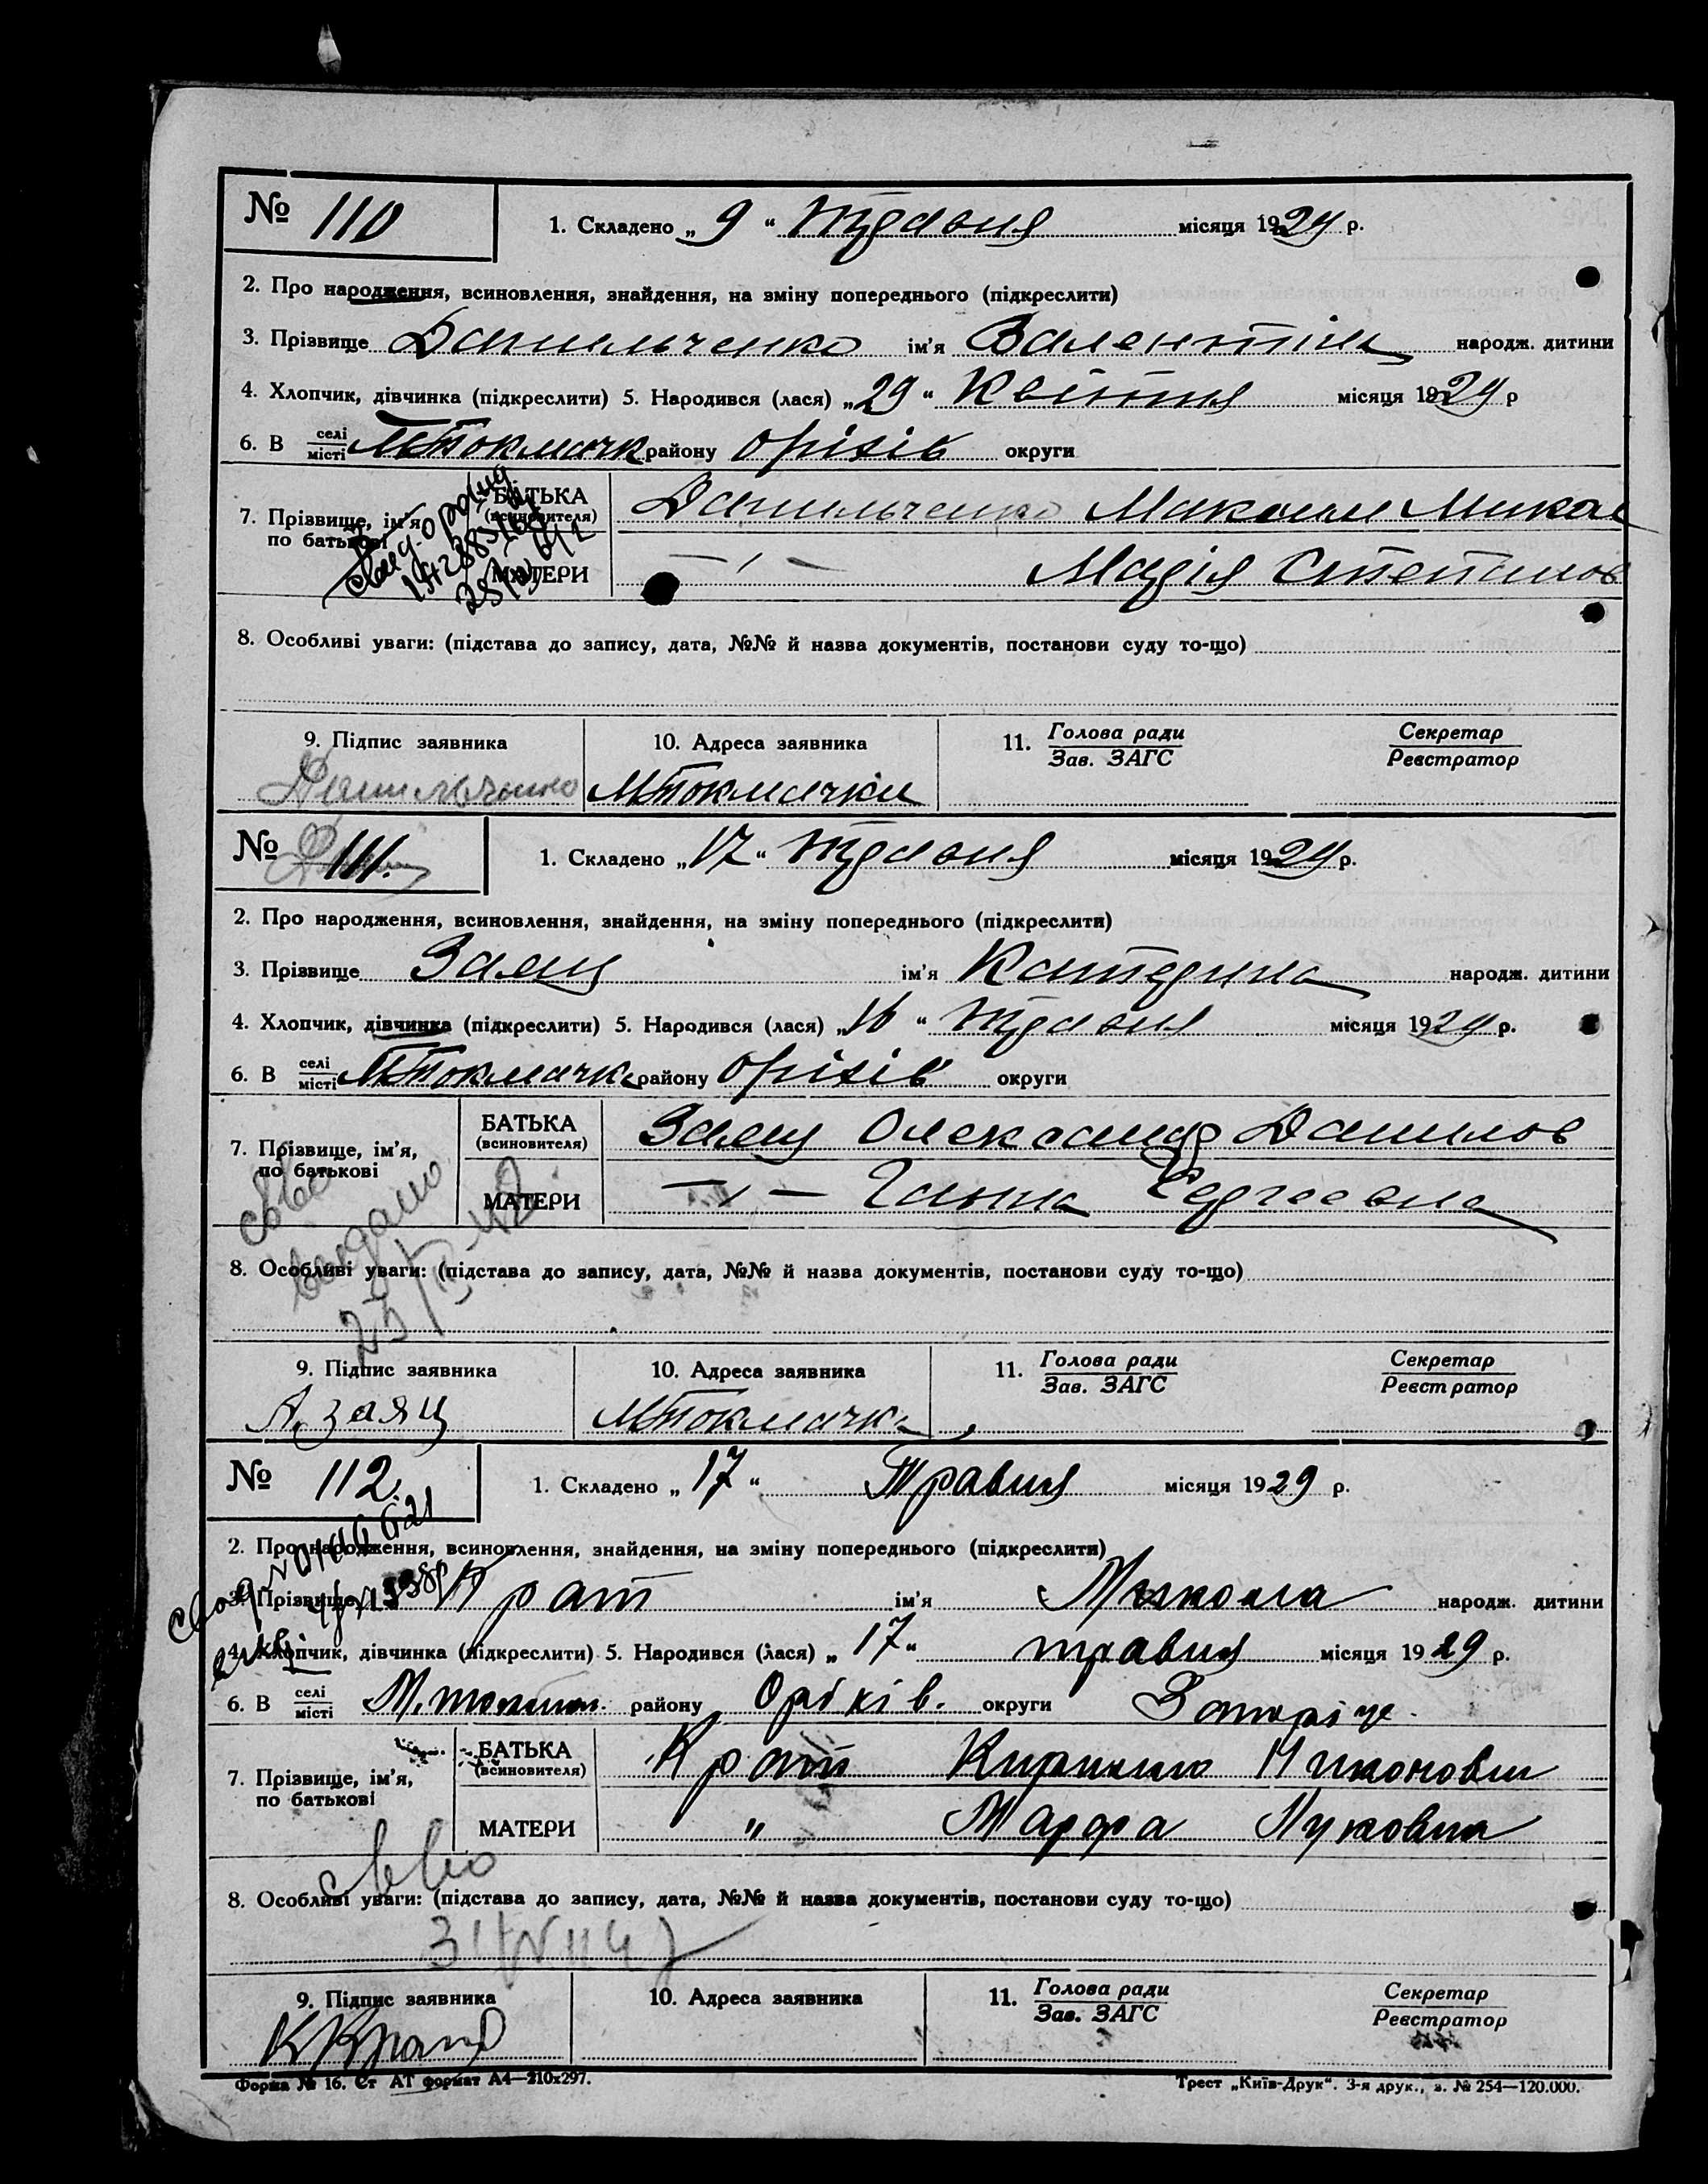 № 110 1. Складено „ 9 “ Травня місяця 1929 р.
2. Про народження, всиновлення, знайдення, на зміну попереднього (підкреслити)
3. Прізвище Данильченко ім'я Валентіна народж. дитини
4. Хлопчик, дівчинка (підкреслити) 5. Народився (лася) „29“ Квітня місяця 1929 р
6. В селі/місті МТокмачк району Оріхів округи
7. Прізвище, ім'я, по батькові
БАТЬКА (всиновителя) Данильченко Максим Микол
МАТЕРИ —"— Марія Степанов
8. Особливі уваги: (підстава до запису, дата, №№ й назва документів, постанови суду то-що)
9. Підпис заявника 10. Адреса заявника 11. Голова ради/Зав. ЗАГС Секретар/Реєстратор
Данильченко МТокмачки
№ 111. 1. Складено „17“ Травня місяця 1929 р.
2. Про народження, всиновлення, знайдення, на зміну попереднього (підкреслити)
3. Прізвище Заяц ім'я Катерина народж. дитини
4. Хлопчик, дівчинка (підкреслити) 5. Народився (лася) „16“ Травня місяця 1929 р.
6. В селі/місті МТокмачк району Оріхів округи
7. Прізвище, ім'я, по батькові
БАТЬКА (всиновителя) Заяц Олександр Данилов
МАТЕРИ —"— Ганна Сергеевна
8. Особливі уваги: (підстава до запису, дата, №№ й назва документів, постанови суду то-що)
9. Підпис заявника 10. Адреса заявника 11. Голова ради/Зав. ЗАГС Секретар/Реєстратор
А. заяц МТокмачк
№ 112. 1. Складено „ 17 “ Травня місяця 1929 р.
2. Про народження, всиновлення, знайдення, на зміну попереднього (підкреслити)
3. Прізвище Крат ім'я Микола народж. дитини
4. Хлопчик, дівчинка (підкреслити) 5. Народився (лася) „ 17 “ травня місяця 1929 р.
6. В селі/місті М. району Оріхів. округи
7. Прізвище, ім'я, по батькові
БАТЬКА (всиновителя) Крат Кирилло
МАТЕРИ " Марфа Луковна
8. Особливі уваги: (підстава до запису, дата, №№ й назва документів, постанови суду то-що)
9. Підпис заявника 10. Адреса заявника 11. Голова ради/Зав. ЗАГС Секретар/Реєстратор
К Крат
Форма № 16. Ст АТ формат А4—210х297. Трест „Київ-Друк“. 3-я друк., з. № 254—120.000.